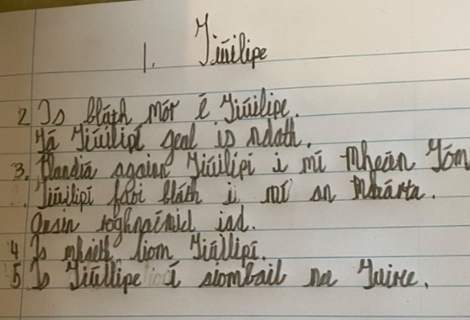 1. Tiúilipe
2 Is bláth mór é Tiúilipe.
Tá Tiúilipí geal is ndath.
3. Plandia againn Tiúilipí i mí Mheán Fóm
Tiúilipí faoi bláth i mí an Mhárta.
Ansin roghnaímid iad.
4 Is mhaith liom Tiúllipí.
5 Is Tiúllipe í siombail na Tuirce.